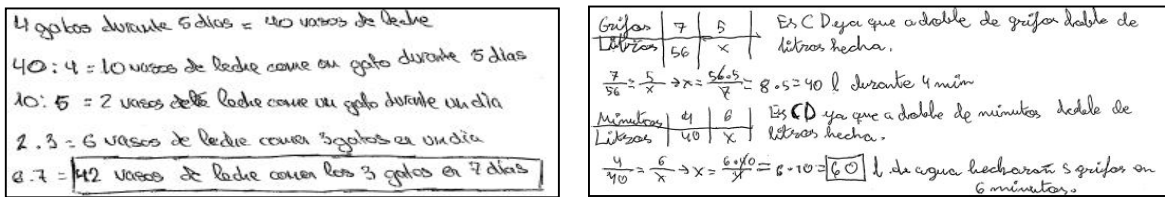 4 gatos durante 5 días = 40 vasos de leche
40 : 4 = 10 vasos de leche come un gato durante 5 días
10 : 5 = 2 vasos de leche come un gato durante un día
2 . 3 = 6 vasos de leche comen 3 gatos en un día
6 . 7 = 42 vasos de leche comen los 3 gatos en 7 días
Grifos | 7 | 5
Litros | 56 | x
Es CD ya que a doble de grifos doble de
litros hecha.
7/56 = 5/x → x = 56·5/7 = 8·5 = 40 l durante 4 min
Minutos | 4 | 6
Litros | 40 | x
Es CD ya que a doble de minutos doble de
litros hecha.
4/40 = 6/x → x = 6·40/4 = 6·10 = 60 l de agua hecharán 5 grifos en
6 minutos.